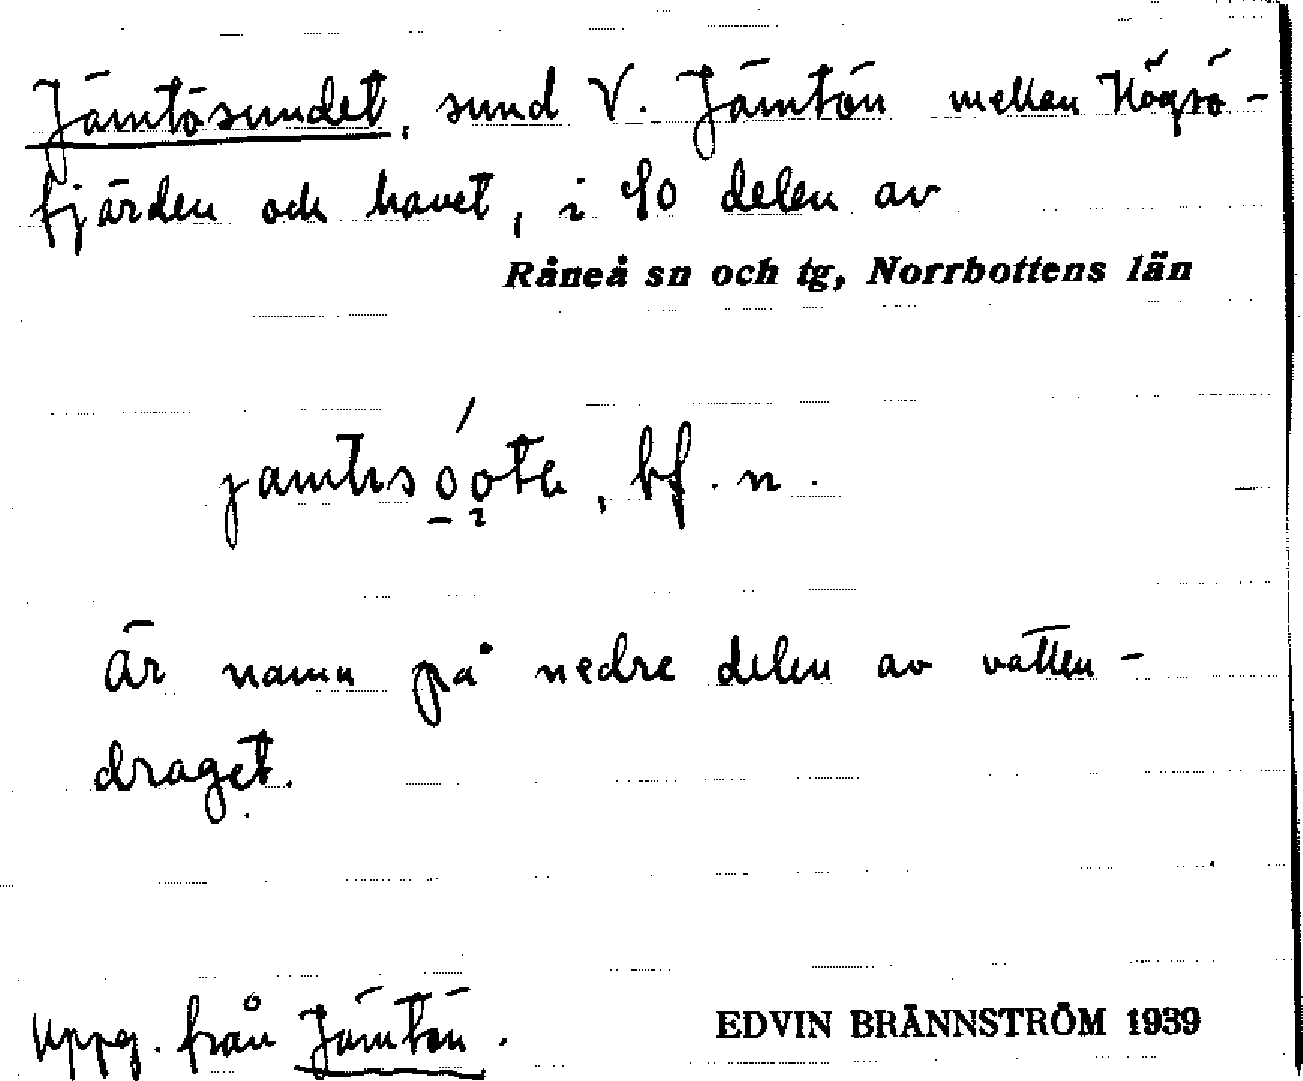 Jämtösundet, sund V. Jämtön mellan Högsö-
fjärden och havet, i SO delen av
Råneå sn och tg, Norrbottens län
bf. n.
Är namn på nedre delen av vatten-
draget.
Uppg. från Jämtön.
EDVIN BRÄNNSTRÖM 1939